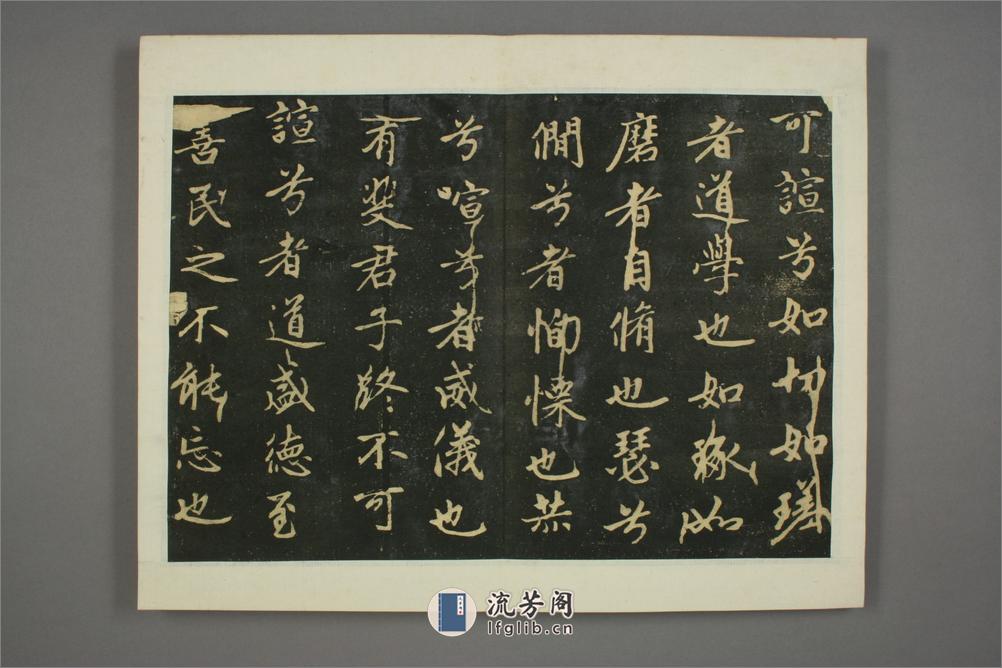 可諠兮如切如瑳
者道學也如琢如
磨者自脩也瑟兮
僩兮者恂慄也赫
兮喧兮者威儀也
有斐君子終不可
諠兮者道盛德至
善民之不能忘也
流芳阁
lfglib.cn